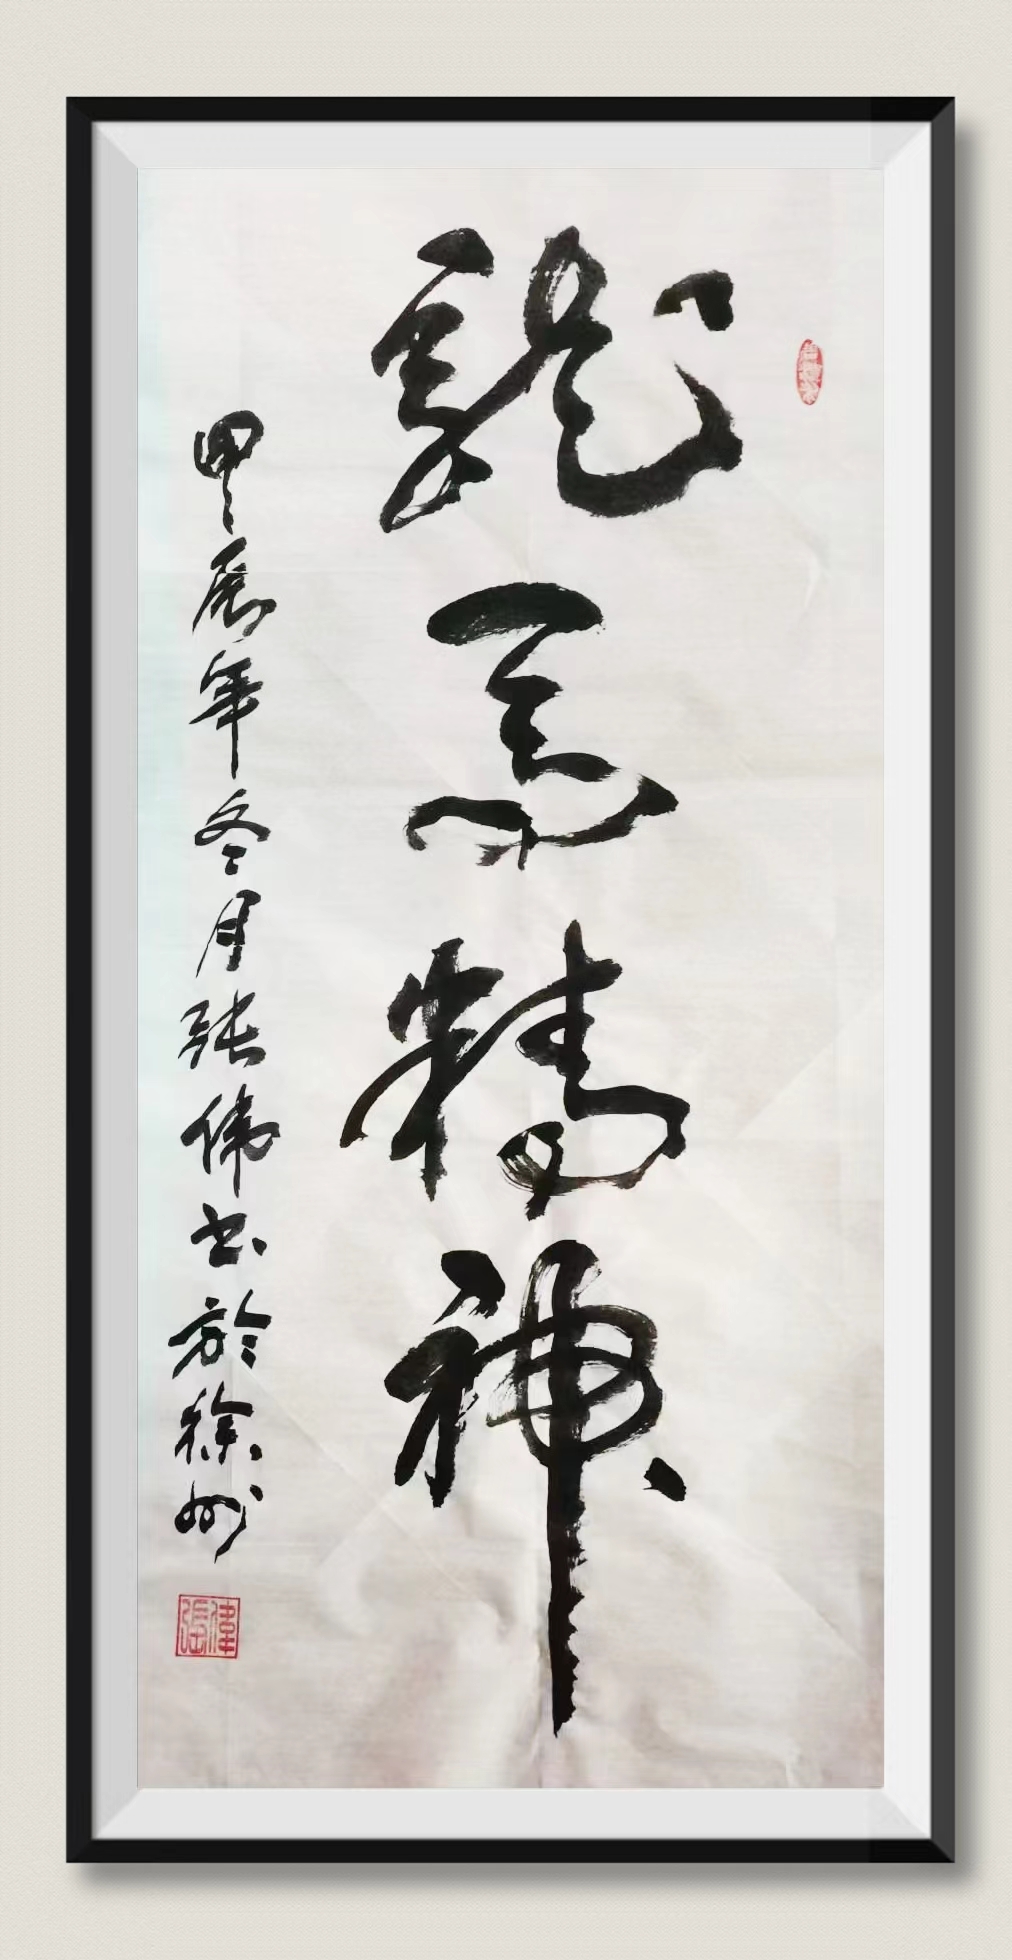 龍馬精神
甲辰年冬月張偉書於徐州
張偉